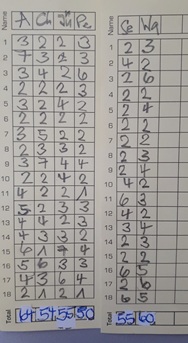 A Ch Ju Pe
1 3 2 2 3
2 7 3 2 3
3 3 4 2 6
4 2 2 2 3
5 3 2 4 2
6 2 2 2 2
7 3 5 2 2
8 2 3 3 2
9 3 7 4 4
10 2 2 4 2
11 4 2 2 1
12 5 2 3 3
13 4 4 2 3
14 4 3 3 2
15 6 7 4
16 5 6 3 3
17 4 3 6 4
18 2 1 2 1
Total 64 54 55 50
Ce Wa
1 2 3
2 4 2
3 2 6
4 2 2
5 2 4
6 2 2
7 2 2
8 2 3
9 2 4
10 4 2
11 6 3
12 4 2
13 3 4
14 2 3
15 2 2
16 6 5
17 2 6
18 6 5
Total 55 60